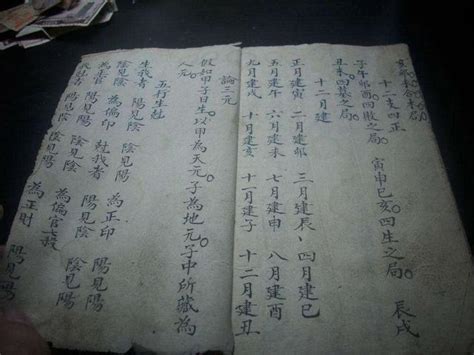 十二支四正
子午卯酉四敗之局。 寅申巳亥。四生之局。 辰戌
丑未四墓之局。
十二月建
正月建寅 二月建卯 三月建辰、四月建巳
五月建午 六月建未 七月建申 八月建酉
九月建戌 十月建亥 十一月建子 十二月建丑
論三元
假如甲子日生。以甲為天元。子為地元。子中所藏為
人元。
五行生尅
生我者 陽見陰 陰見陽 為正印 陽見陽
陰見陰 為偏印 尅我者 陽見陰 陰見陽
為正官 陽見陽 陰見陰 為偏官七殺
我尅者 陽見陰 陰見陽 為正財